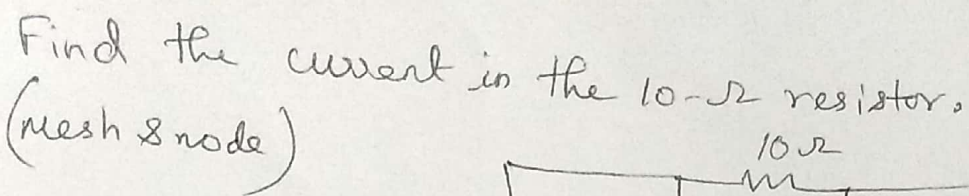 Find the current in the 10-Ω resistor.
(mesh & node)
10Ω